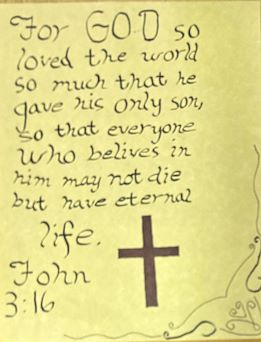 For GOD so
loved the world
so much that he
gave his only son,
so that everyone
who belives in
him may not die
but have eternal
life.
John
3:16